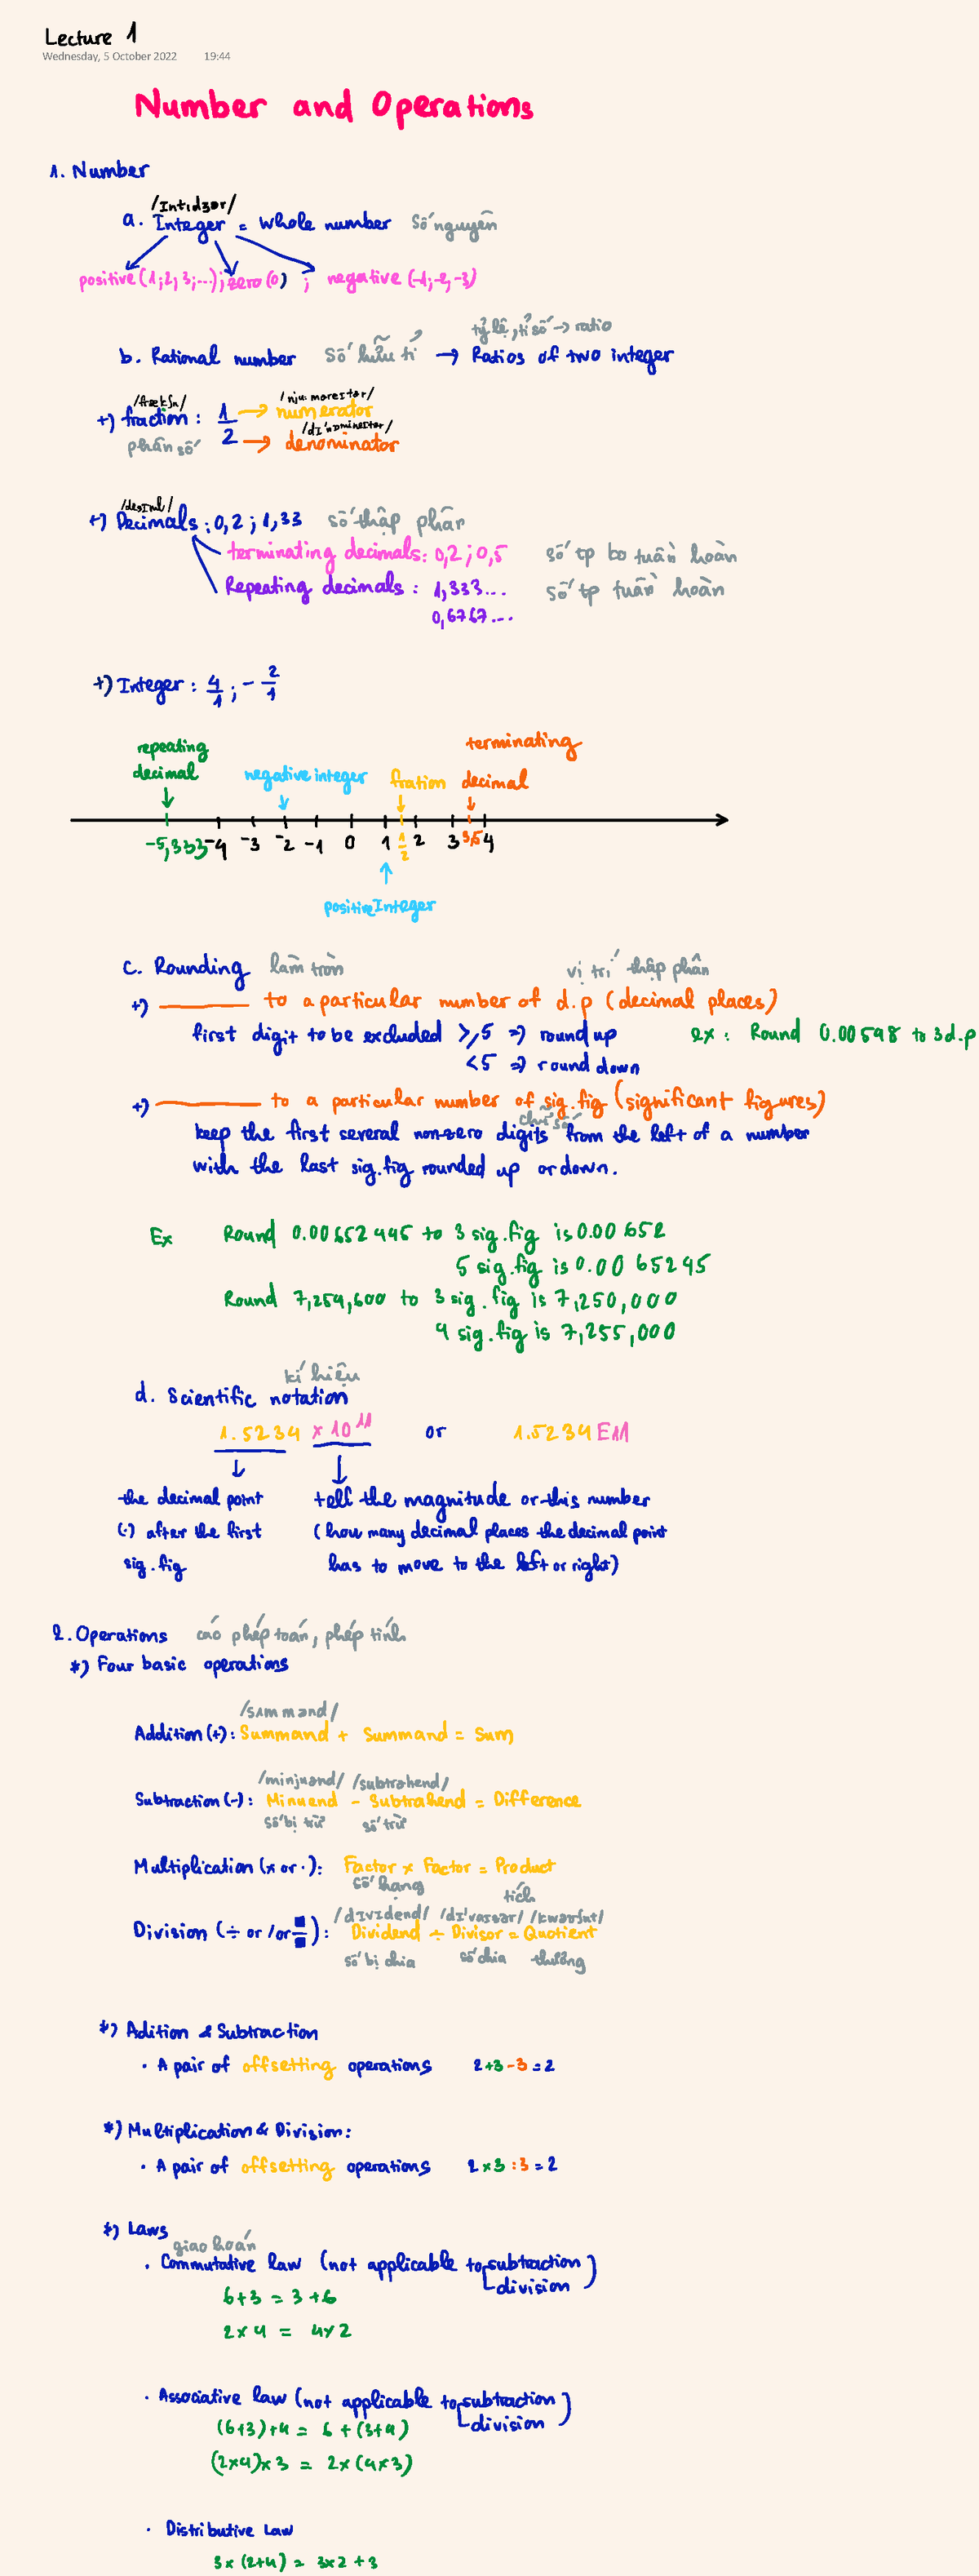 Lecture 1
Wednesday, 5 October 2022 19:44
Number and Operations
1. Number
/Intidʒər/
a. Integer = Whole number số nguyên
positive (1; 2; 3; ...); zero (0) ; negative (-1; -2, -3)
tỷ lệ, tỉ số → ratio
b. Rational number số hữu tỉ → Ratios of two integer
+) fraction : 1/2 → numerator
phân số → denominator
+) Decimals : 0,2 ; 1,33 số thập phân
terminating decimals : 0,2 ; 0,5 số tp ko tuần hoàn
Repeating decimals : 1,333... số tp tuần hoàn
0,6767...
+) Integer : 4/1 ; - 2/1
repeating decimal
negative integer
fration
terminating decimal
-5,333 -4 -3 -2 -1 0 1 1/2 2 3 3,5 4
positive Integer
c. Rounding làm tròn vị trí thập phân
+) ______ to a particular number of d.p (decimal places)
first digit to be excluded ≥ 5 ⇒ round up ex : Round 0.00598 to 3 d.p
< 5 ⇒ round down
+) ______ to a particular number of sig.fig (significant figures)
chữ số
keep the first several non-zero digits from the left of a number
with the last sig.fig rounded up or down.
Ex Round 0.00652445 to 3 sig.fig is 0.00652
5 sig.fig is 0.0065245
Round 7,254,600 to 3 sig.fig is 7,250,000
4 sig.fig is 7,255,000
kí hiệu
d. Scientific notation
1.5234 x 10^11 or 1.5234 E11
the decimal point tell the magnitude or this number
(.) after the first (how many decimal places the decimal point
sig.fig has to move to the left or right)
2. Operations các phép toán, phép tính
*) Four basic operations
/sʌmmənd/
Addition (+) : Summand + Summand = Sum
/minjuənd/ /subtrahend/
Subtraction (-) : Minuend - Subtrahend = Difference
số bị trừ số trừ
Multiplication (x or .) : Factor x Factor = Product
số hạng tích
Division (÷ or / or ■/■) : Dividend ÷ Divisor = Quotient
số bị chia số chia thương
*) Adition & Subtraction
. A pair of offsetting operations 2 + 3 - 3 = 2
*) Multiplication & Division :
. A pair of offsetting operations 2 x 3 : 3 = 2
*) Laws
giao hoán
. Commutative law (not applicable to subtraction
division)
6 + 3 = 3 + 6
2 x 4 = 4 x 2
. Associative law (not applicable to subtraction
division)
(6+3)+4 = 6 + (3+4)
(2x4)x3 = 2x(4x3)
. Distributive Law
3 x (2+4) = 3x2 + 3